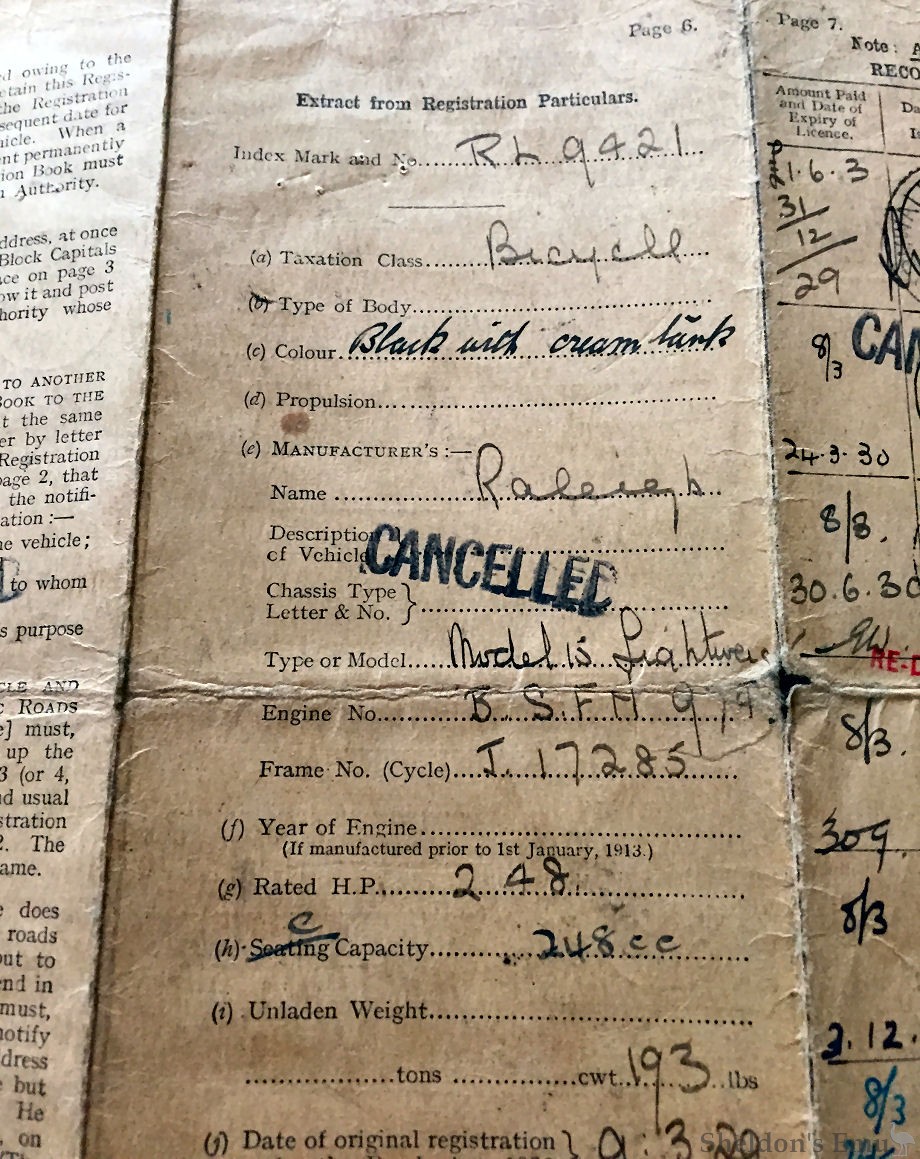 d owing to the
etain this Regis-
the Registration
sequent date for
hicle. When a
ent permanently
ion Book must
n Authority.
ddress, at once
Block Capitals
ace on page 3
ow it and post
hority whose
TO ANOTHER
BOOK TO THE
t the same
er by letter
Registration
page 2, that
the notifi-
ation :—
ne vehicle;
to whom
s purpose
CLE AND
C ROADS
e] must,
up the
3 (or 4,
nd usual
stration
2. The
ame.
e does
roads
out to
end in
must,
notify
dress
e but
He
, on
Page 6.
Extract from Registration Particulars.
Index Mark and No. RL 9421
(a) Taxation Class Bicycle
(b) Type of Body
(c) Colour Black with cream tank
(d) Propulsion
(e) MANUFACTURER'S :—
Name Raleigh
Description
of Vehicle
CANCELLED
Chassis Type
Letter & No.
Type or Model Model 15
Engine No. B.S.F.M.
Frame No. (Cycle) J. 17285
(f) Year of Engine
(If manufactured prior to 1st January, 1913.)
(g) Rated H.P. 2 48
c
(h) Seating Capacity 248 cc
(i) Unladen Weight
tons cwt. 193 lbs
(j) Date of original registration 9.3.29
Page 7.
Note: A
RECO
Amount Paid
and Date of
Expiry of
Licence.
Da
1.6.3
31/
12/
29
8/3
CAN
24.3.30
8/8.
30.6.30
RE-D
8/3.
309.
8/3
2.12.
8/3
Sheldon's Emu